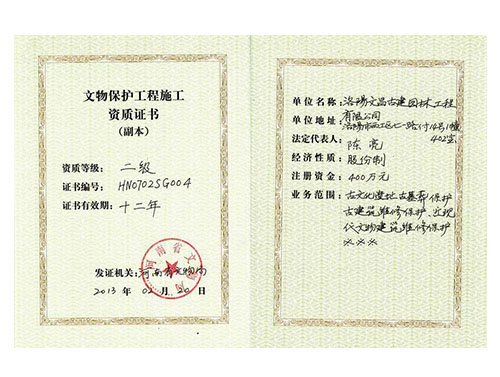 文物保护工程施工
资质证书
(副本)
资质等级: 二级
证书编号: HN0702SG004
证书有效期: 十二年
发证机关: 河南省文物局
2013 年 02 月 20 日
河南省文物局
单位名称: 洛阳文昌古建园林工程
有限公司
单位地址: 洛阳市西工区七一路付14号1幢
402室
法定代表人: 陈亮
经济性质: 股份制
注册资金: 400万元
业务范围: 古文化遗址古墓葬保护
古建筑维修保护、近现
代文物建筑维修保护
※※※